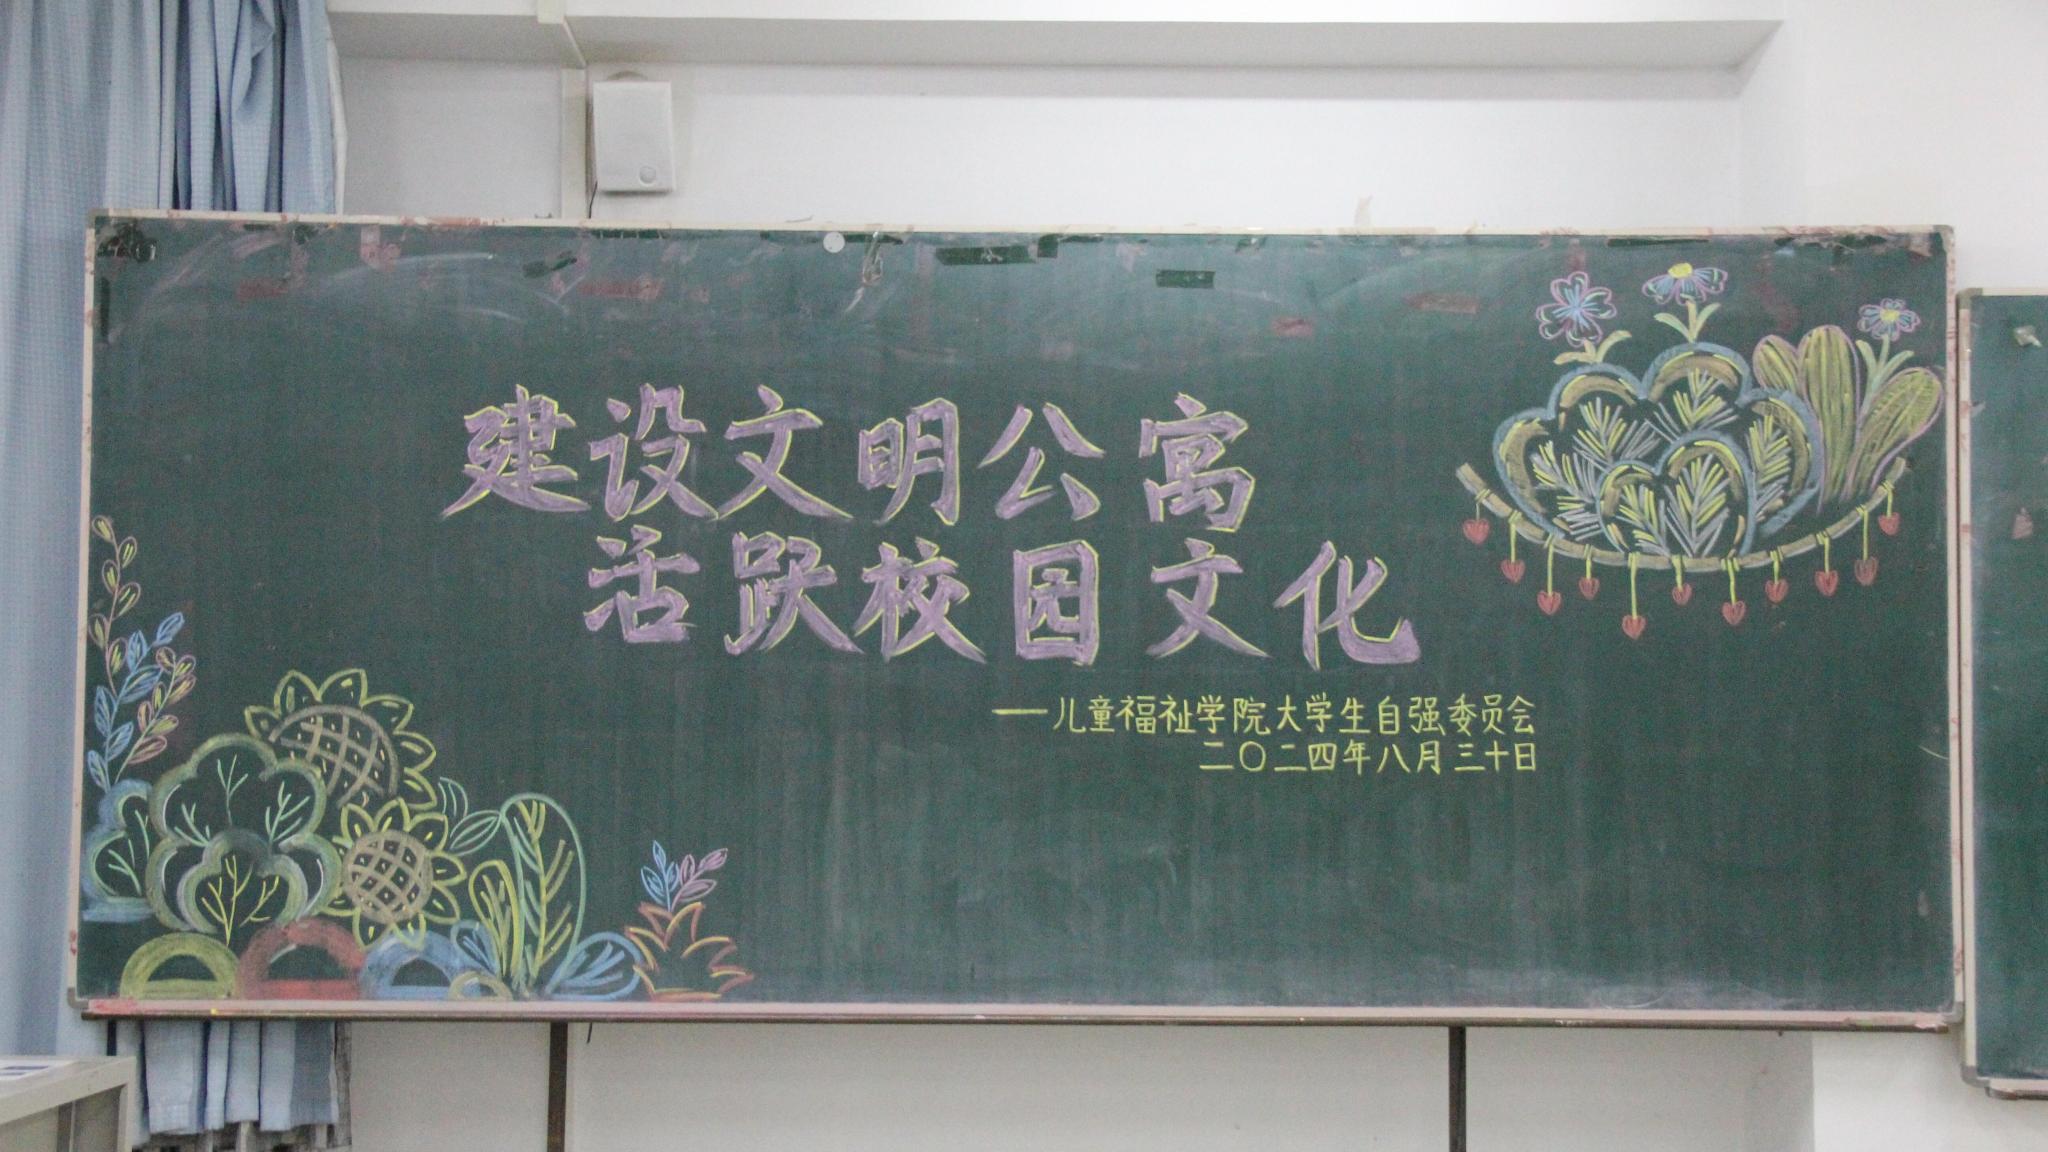 建设文明公寓
活跃校园文化
—儿童福祉学院大学生自强委员会
二〇二四年八月三十日